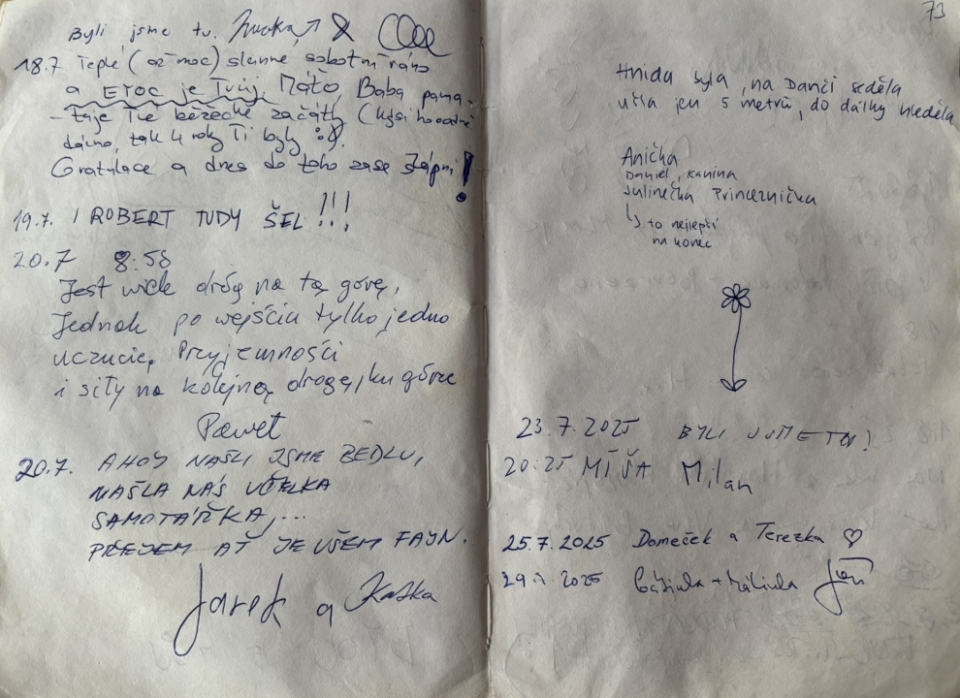 Byli jsme tu.
18.7 Teplé (až moc) slunné sobotní ráno
a ETOC je Tvůj, Máťo, Baba pama-
-tuje Tvé běžecké začátky (kdysi hodně
dávno, tak 4 roky Ti byly :).
Gratulace a dnes do toho zase šlápni!
19.7. I ROBERT TUDY ŠEL!!!
20.7 8:58
Jest wiele dróg na tą górę,
Jednak po wejściu tylko jedno
uczucie, Przyjemności
i siły na kolejną drogę, ku górze
Paweł
20.7. AHOJ NAŠLI JSME BEDLU,
NAŠLA NÁS VČELKA
SAMOTÁŘKA,...
PŘEJEM AŤ JE VŠEM FAJN.
Jarek a Katka
73
Hnida byla, na Danči seděla
ušla jen 5 metrů, do dálky hleděla
Anička
Daniel, Kanina
Julinečka Princeznička
↳ to nejlepší
na konec
23.7.2025 BYLI JSME TU!
20:25 MÍŠA Milan
25.7.2025 Domeček a Terezka ♡
29.7.2025